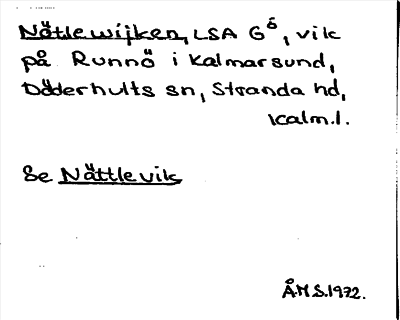 Nätlewijken, LSA Gö, vik
på Runnö i Kalmarsund,
Döderhults sn, Stranda hd,
Kalm.l.
Se Nättlevik
ÅMS.1972.